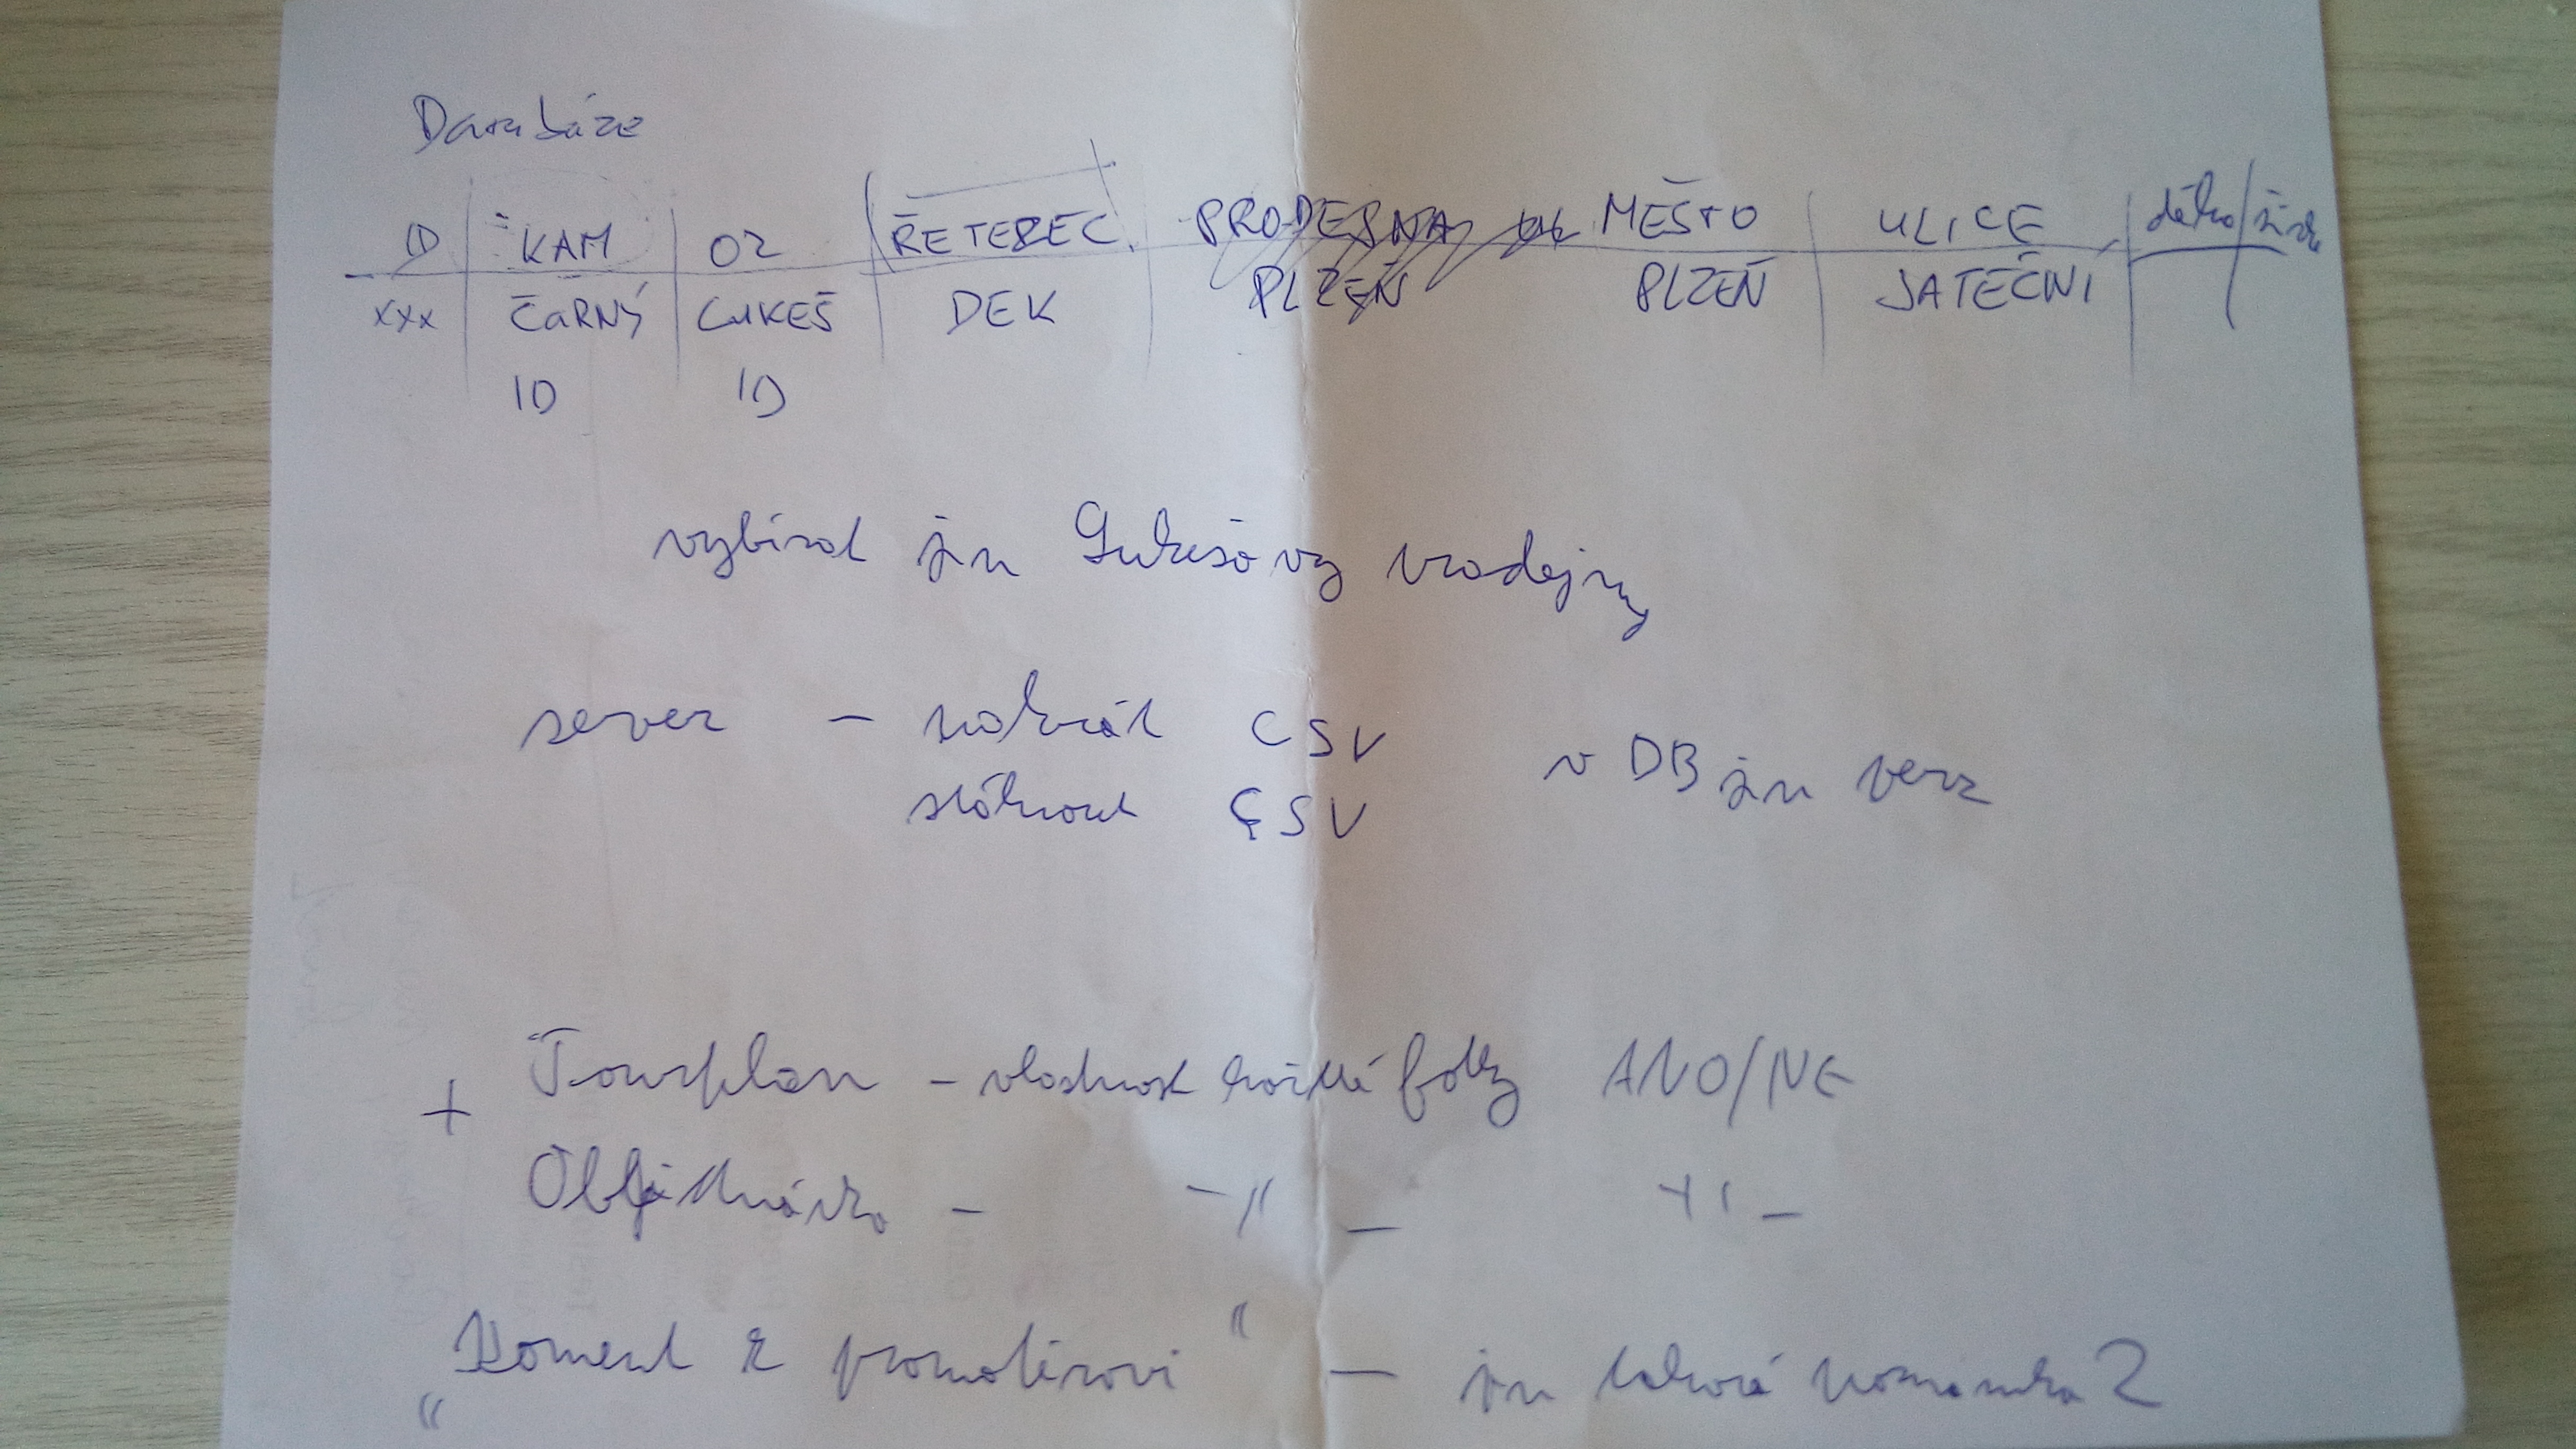 Databáze
ID KAM OZ ŘETEZEC PRODEJNA MĚSTO ULICE délka/šířka
xxx ČARNÝ LUKEŠ DEK PLZEŇ PLZEŇ JATEČNI
ID ID
vybírat jen Lukešovy prodejny
server - nahrát CSV
stáhnout CSV v DB jen verz
+ Tourplan - vlastnost každé fotky ANO/NE
Objednávka - -"- -"-
"Koment k promotérovi" - jen taková poznámka?